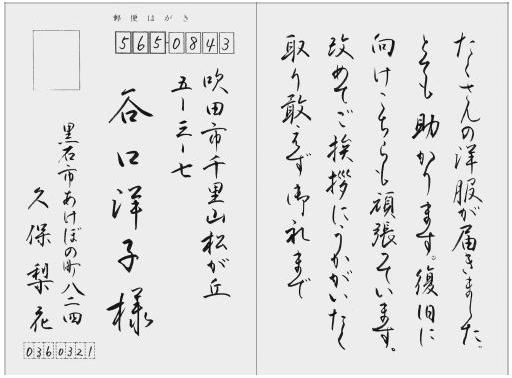 郵便はがき
565-0843
吹田市千里山松が丘
五ー三ー七
谷口洋子様
黒石市あけぼの町八二四
久保梨花
0360321
たくさんの洋服が届きました。
とても助かります。復旧に
向けこちらも頑張っています。
改めてご挨拶にうかがいたく
取り敢えず御礼まで